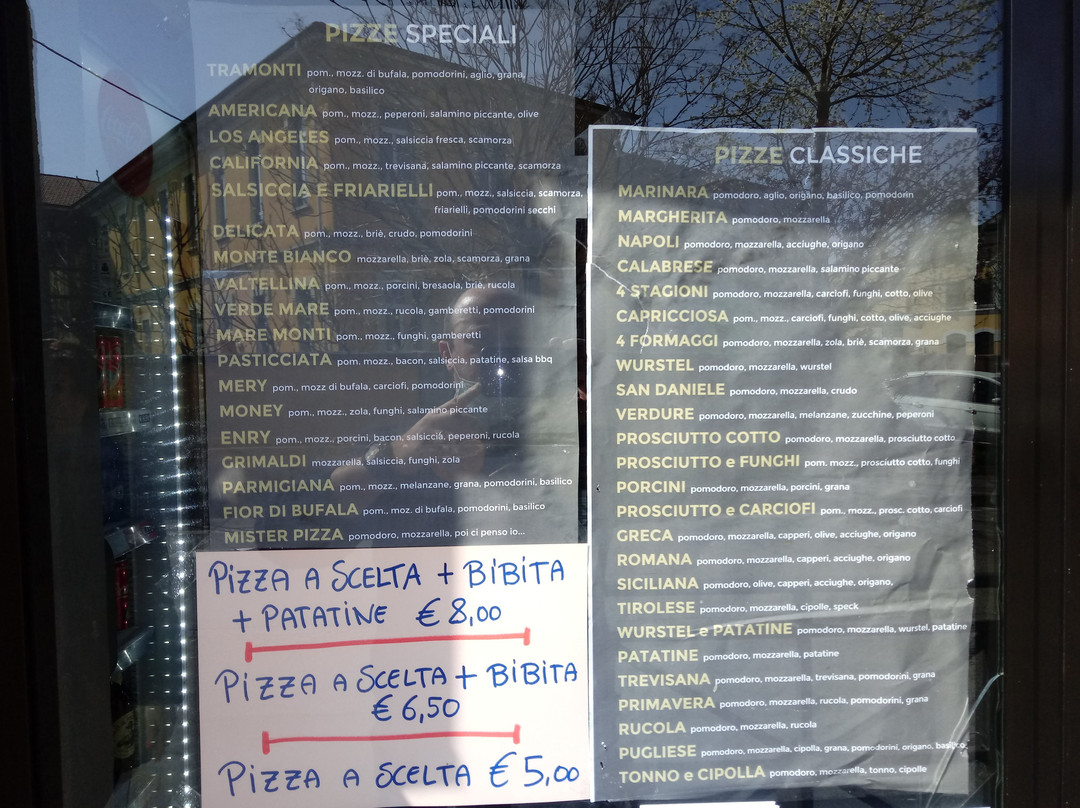 PIZZE SPECIALI
TRAMONTI pom., mozz. di bufala, pomodorini, aglio, grana,
origano, basilico
AMERICANA pom., mozz., peperoni, salamino piccante, olive
LOS ANGELES pom., mozz., salsiccia fresca, scamorza
CALIFORNIA pom., mozz., trevisana, salamino piccante, scamorza
SALSICCIA E FRIARIELLI pom., mozz., salsiccia, scamorza,
friarielli, pomodorini secchi
DELICATA pom., mozz., briè, crudo, pomodorini
MONTE BIANCO mozzarella, briè, zola, scamorza, grana
VALTELLINA pom., mozz., porcini, bresaola, briè, rucola
VERDE MARE pom., mozz., rucola, gamberetti, pomodorini
MARE MONTI pom., mozz., funghi, gamberetti
PASTICCIATA pom. mozz., bacon, salsiccia, patatine, salsa bbq
MERY pom., mozz di bufala, carciofi, pomodorini
MONEY pom., mozz., zola, funghi, salamino piccante
ENRY pom., mozz., porcini, bacon, salsiccia, peperoni, rucola
GRIMALDI mozzarella, salsiccia, funghi, zola
PARMIGIANA pom., mozz., melanzane, grana, pomodorini, basilico
FIOR DI BUFALA pom., moz. di bufala, pomodorini, basilico
MISTER PIZZA pomodoro, mozzarella, poi ci penso io...
PIZZA A SCELTA + BIBITA
+ PATATINE € 8,00
PIZZA A SCELTA + BIBITA
€ 6,50
PIZZA A SCELTA € 5,00
PIZZE CLASSICHE
MARINARA pomodoro, aglio, origano, basilico, pomodorin
MARGHERITA pomodoro, mozzarella
NAPOLI pomodoro, mozzarella, acciughe, origano
CALABRESE pomodoro, mozzarella, salamino piccante
4 STAGIONI pomodoro, mozzarella, carciofi, funghi, cotto, olive
CAPRICCIOSA pom., mozz., carciofi, funghi, cotto, olive, acciughe
4 FORMAGGI pomodoro, mozzarella, zola, briè, scamorza, grana
WURSTEL pomodoro, mozzarella, wurstel
SAN DANIELE pomodoro, mozzarella, crudo
VERDURE pomodoro, mozzarella, melanzane, zucchine, peperoni
PROSCIUTTO COTTO pomodoro, mozzarella, prosciutto cotto
PROSCIUTTO e FUNGHI pom. mozz., prosciutto cotto, funghi
PORCINI pomodoro, mozzarella, porcini, grana
PROSCIUTTO e CARCIOFI pom., mozz., prosc. cotto, carciofi
GRECA pomodoro, mozzarella, capperi, olive, acciughe, origano
ROMANA pomodoro, mozzarella, capperi, acciughe, origano
SICILIANA pomodoro, olive, capperi, acciughe, origano,
TIROLESE pomodoro, mozzarella, cipolle, speck
WURSTEL e PATATINE pomodoro, mozzarella, wurstel, patatine
PATATINE pomodoro, mozzarella, patatine
TREVISANA pomodoro, mozzarella, trevisana, pomodorini, grana
PRIMAVERA pomodoro, mozzarella, rucola, pomodorini, grana
RUCOLA pomodoro, mozzarella, rucola
PUGLIESE pomodoro, mozzarella, cipolla, grana, pomodorini, origano, basilico
TONNO e CIPOLLA pomodoro, mozzarella, tonno, cipolle